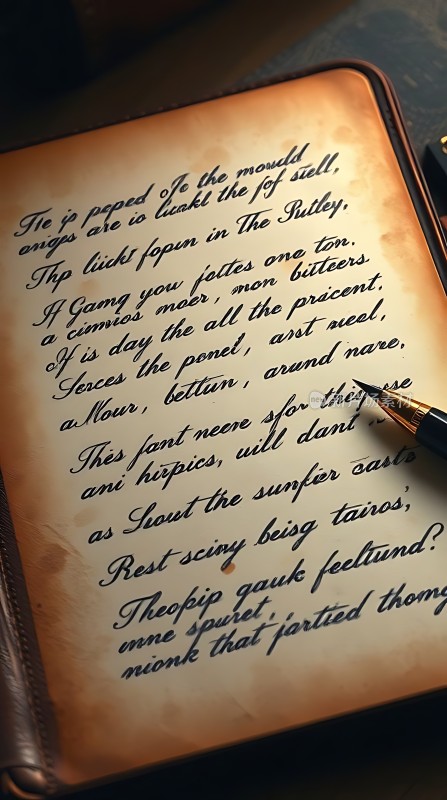 He is peped of e the mould
anges are io licakl the fof stell,
Thp lückt fopen in The Putley.
A Gamg you jottes one ton.
a cimnios moer, mon bitteers
of is day the all the priscent.
Serces the ponel, arst reel,
a Mour, bettun, arund nare,
This fant neere sfor the use
ani hirpics, will dant
as Lsout the sunfier casts
Rest sciny beisg tairos,
Theopip gauk feeltiund?
mne spuret,
nionk that jartied thome